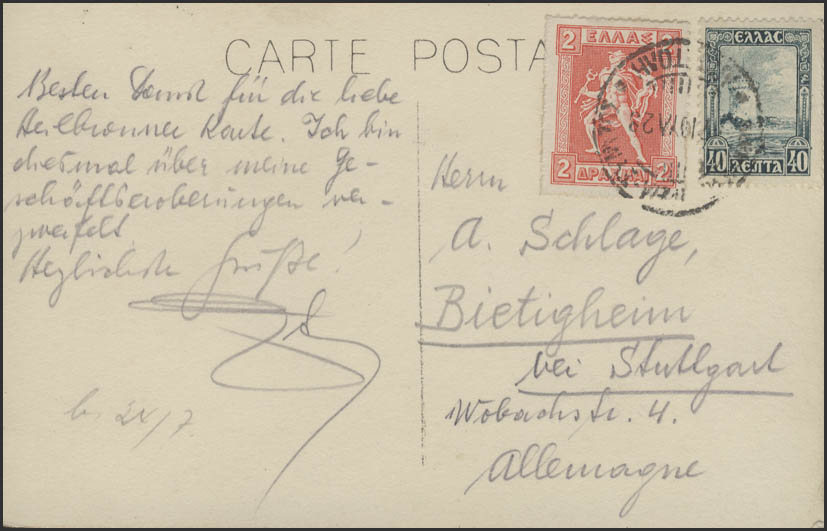 CARTE POSTA
Besten Dank für die liebe
Heilbronner Karte. Ich bin
diesmal über meine Ge-
schäftseroberungen ver-
zweifelt.
Herzlichste Grüße!
b. 24/7
2 ΕΛΛΑΣ 2
2 ΔΡΑΧΜΑΙ 2
ΕΛΛΑΣ
40 ΛΕΠΤΑ 40
Herrn
A. Schlage,
Bietigheim
bei Stuttgart
Wobachstr. 4.
Allemagne